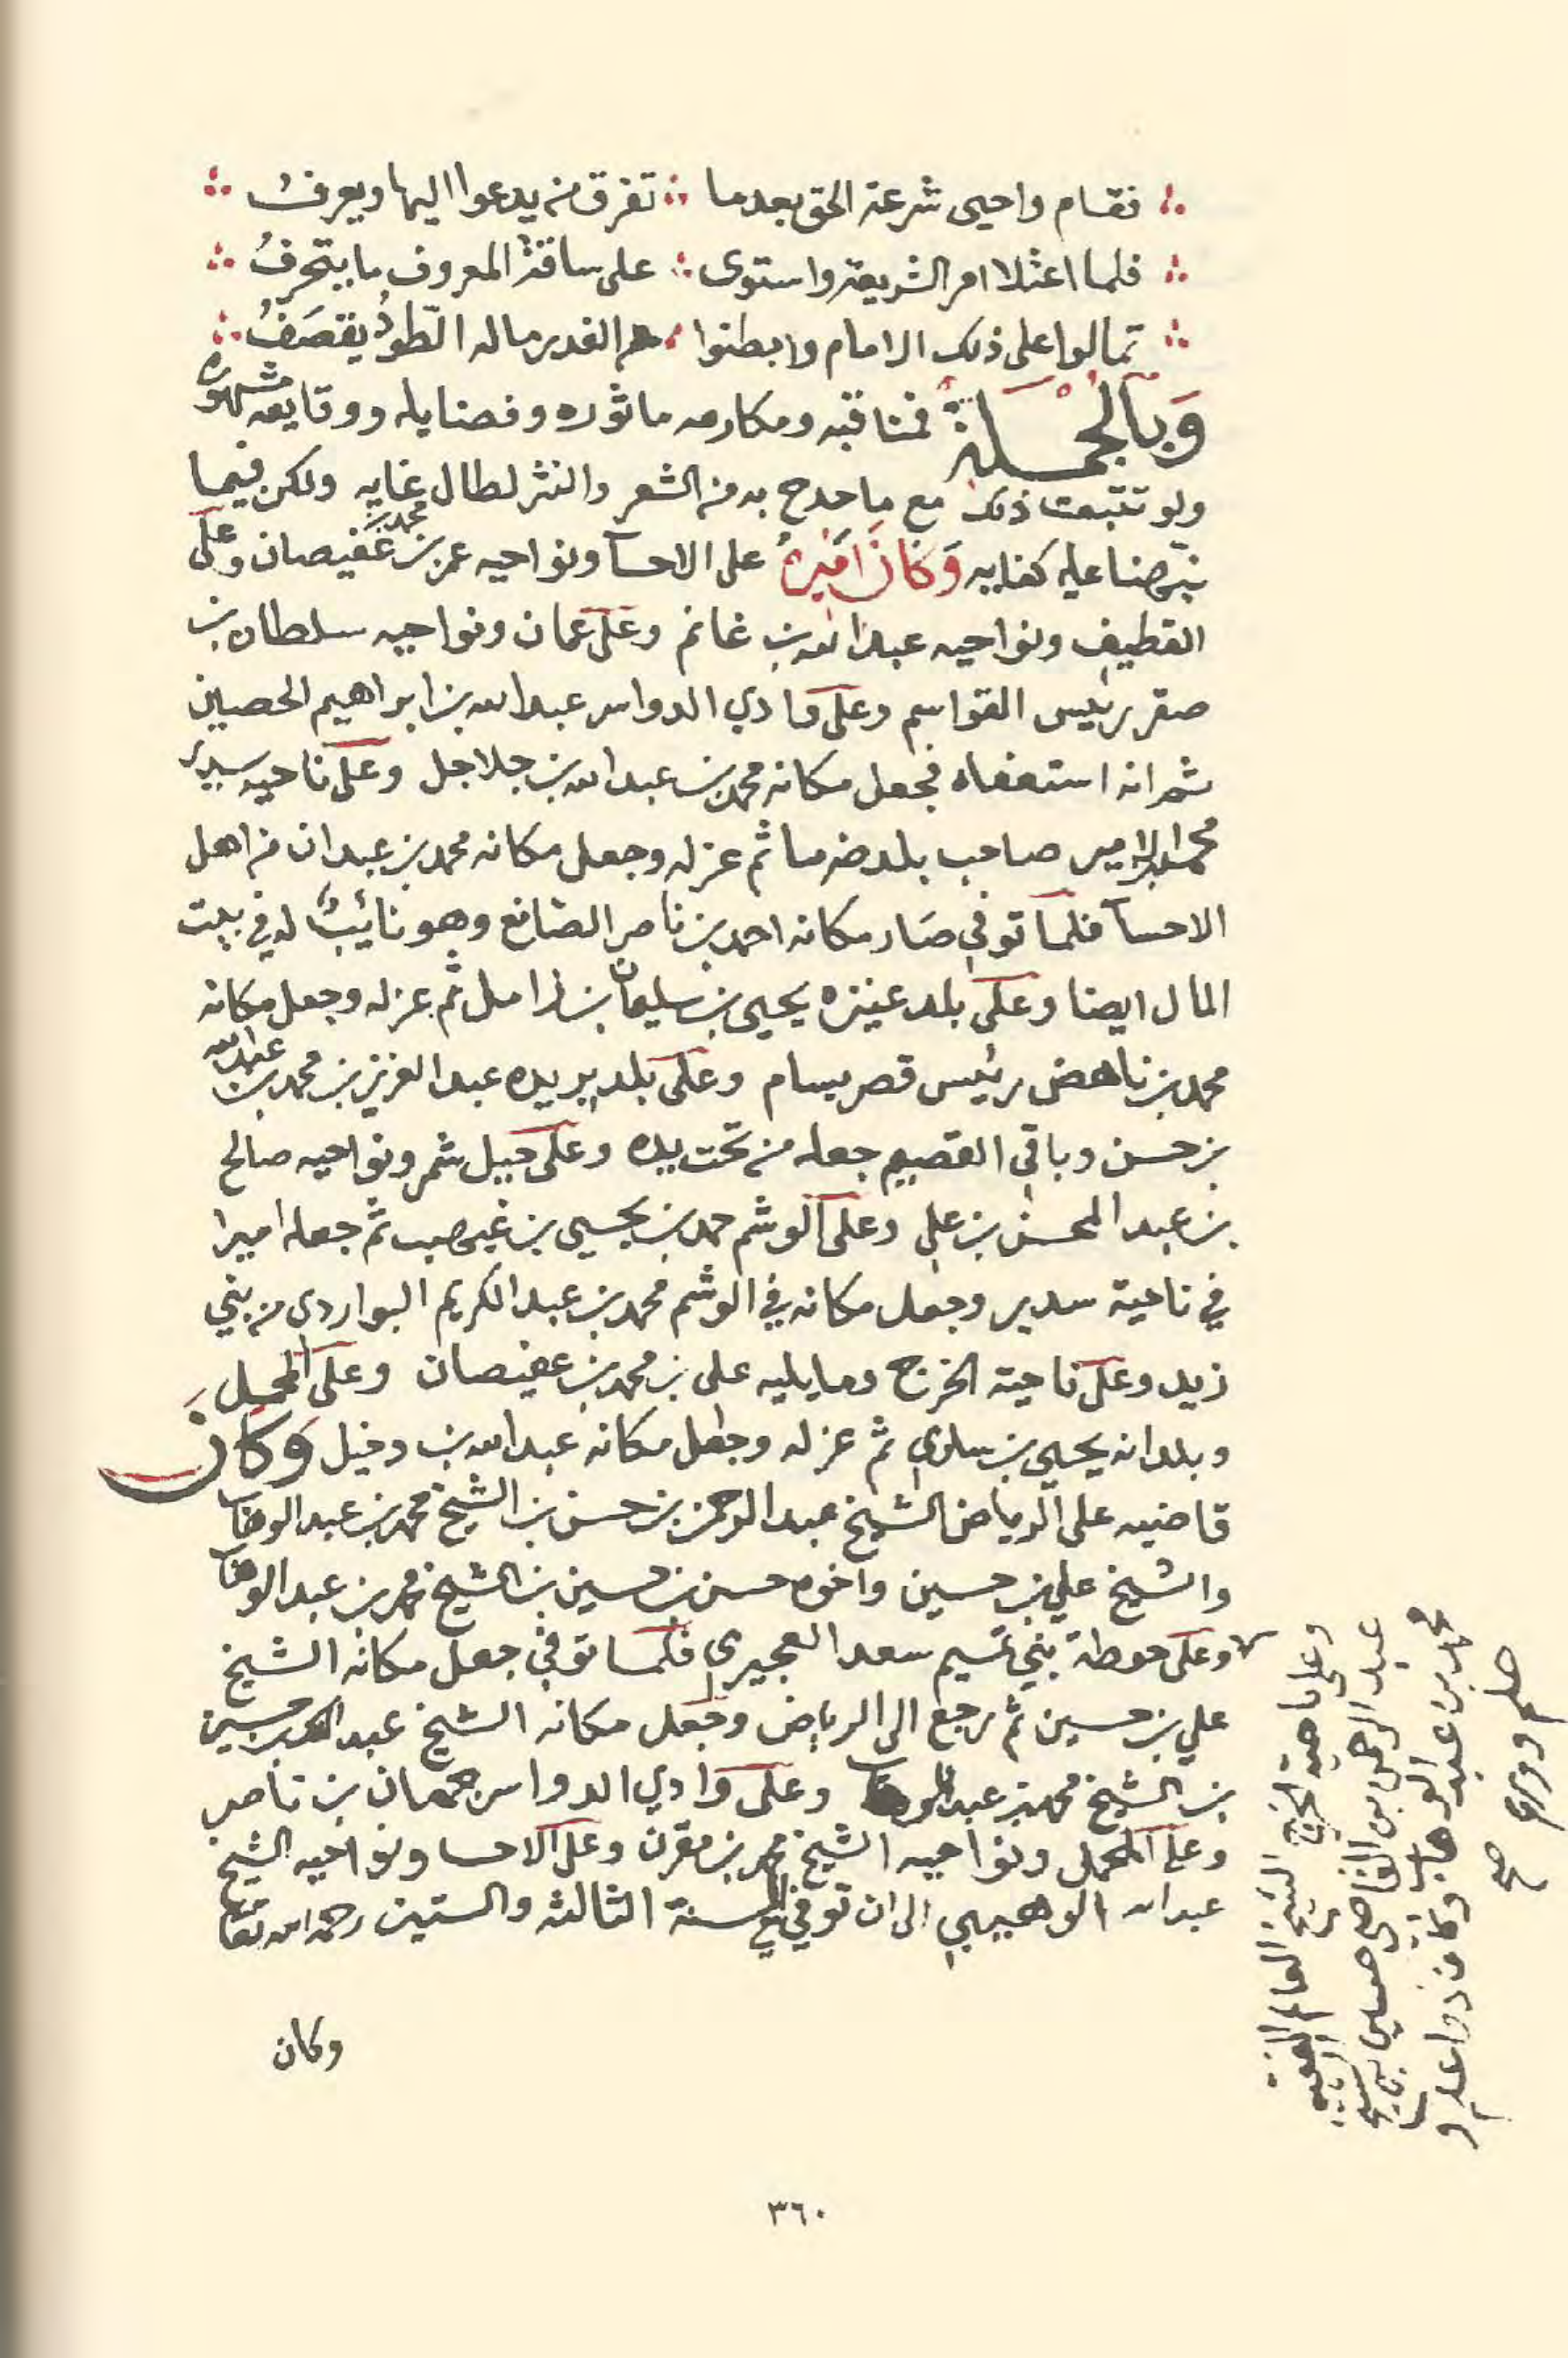 فقام واحيى شرعة الحق بعدما ∴ تفرق من يدعوا اليها ويعرف
فلما اعتلا امر الشريعة واستوى ∴ على ساقة المعروف ما يتحرف
تمالوا على ذلك الامام وابطنوا ∴ هم الغدر ماله الطود يقصف
وبالجملة فمناقبه ومكارمه ماثوره وفضايله ووقايعه مشهوره
ولو تتبعت ذلك مع ما مدح به من الشعر والنثر لطال غايه ولكن فيما
نبهنا عليه كفايه وكان اميره على الاحسآ ونواحيه عمر بن محمد بن عفيصان وعلى
القطيف ونواحيه عبدالله بن غانم وعلى عمان ونواحيه سلطان بن
صقر رئيس القواسم وعلى وادي الدواسر عبدالله بن ابراهيم الحصين
ثم انه استعفاه فجعل مكانه محمد بن عبدالله بن جلاجل وعلى ناحيه سدير
صاحب بلد ضرما ثم عزله وجعل مكانه محمد بن عبدان من اهل
الاحسآ فلما توفي صار مكانه احمد بن ناصر الصانع وهو نائب له في بيت
المال ايضا وعلى بلد عنيزه يحيى بن سليمان بن زامل ثم عزله وجعل مكانه
محمد بن ناهض رئيس قصر بسام وعلى بلد بريده عبدالعزيز بن محمد بن عبدالله
بن حسن وباقي القصيم جعله من تحت يده وعلى جبل شمر ونواحيه صالح
بن عبدالمحسن بن علي وعلى الوشم حمد بن يحيى بن غيهب ثم جعله اميرا
في ناحية سدير وجعل مكانه في الوشم محمد بن عبدالكريم البواردي من بني
زيد وعلى ناحية الخرج وما يليه علي بن محمد بن عفيصان وعلى المحمل
وبلدانه يحيى بن سلوم ثم عزله وجعل مكانه عبدالله بن دخيل وكان
قاضيه على الرياض الشيخ عبدالرحمن بن حسن بن الشيخ محمد بن عبدالوهاب
والشيخ علي بن حسين واخوه حسن بن حسين بن الشيخ محمد بن عبدالوهاب
وعلى حوطة بني تميم سعد العجيري فلما توفي جعل مكانه الشيخ
علي بن حسين ثم رجع الى الرياض وجعل مكانه الشيخ عبدالملك بن حسين
بن الشيخ محمد بن عبدالوهاب وعلى وادي الدواسر جمعان بن ناصر
وعلى المحمل ونواحيه الشيخ محمد بن مقرن وعلى الاحسا ونواحيه الشيخ
عبدالله الوهيبي الى ان توفي في السنة الثالثه والستين رحمه الله تعا
وعلى ناحية الخرج الشيخ العالم الفقيه
عبد الرحمن بن القاضي حسين بن الشيخ
محمد بن عبد الوهاب وكان ذوا علم و
حلم وورع صح
وكان
٣٦٠